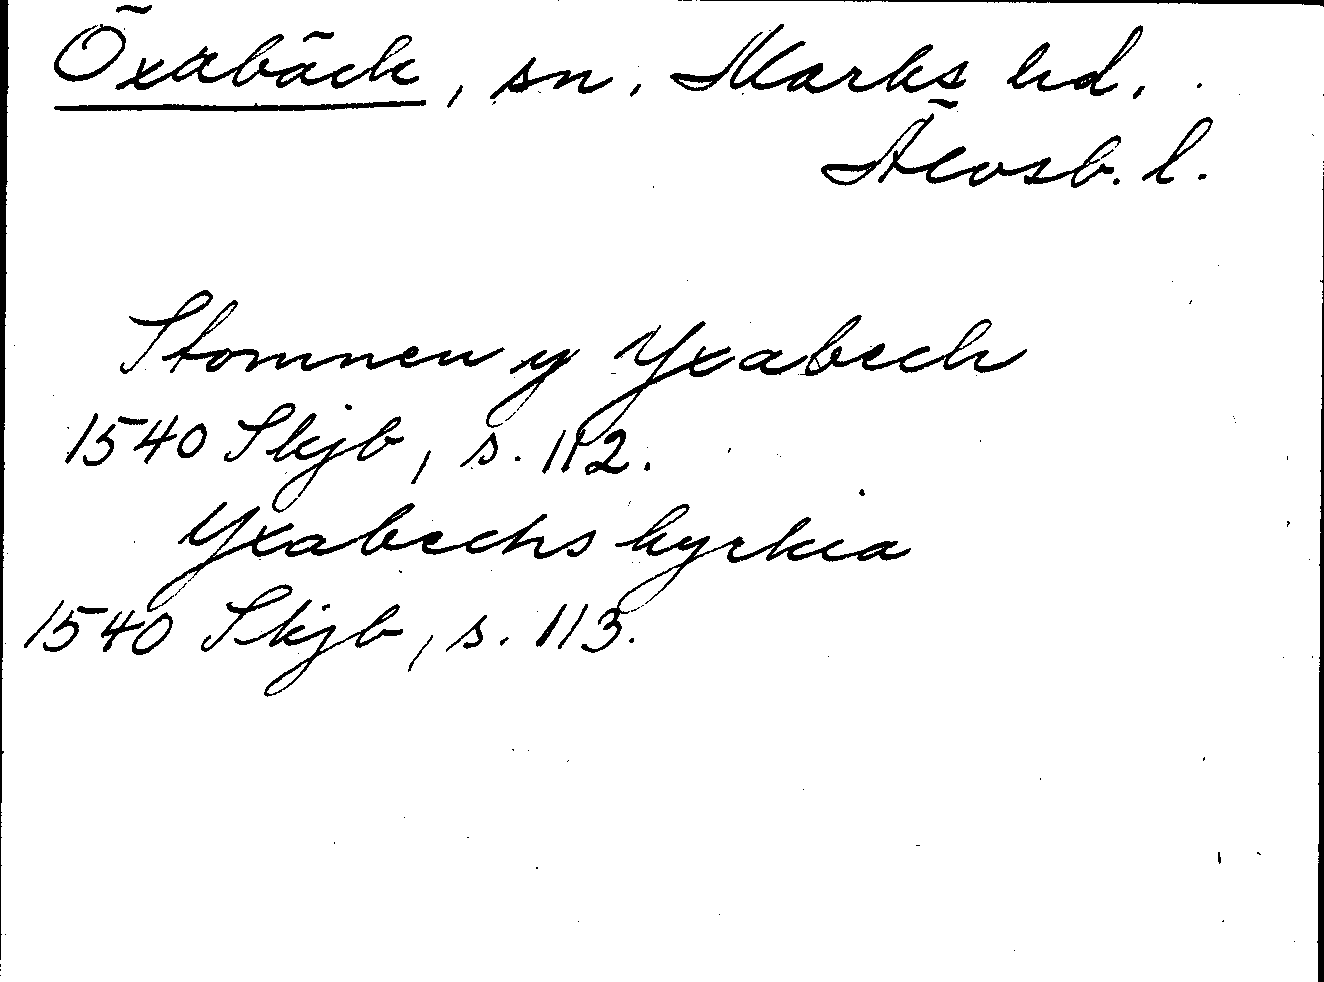 Öxabäck, sn, Marks hd.
Älvsb. l.
Stomnen y Yxabech
1540 Skjb, s. 112.
Yxabechs kyrkia
1540 Skjb, s. 113.